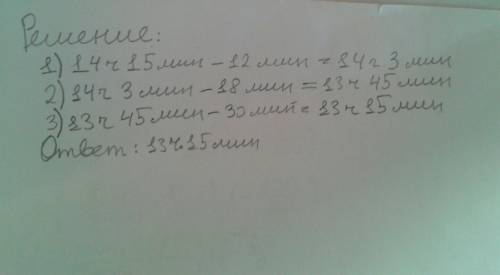 Решение:
1) 14ч 15мин - 12 мин = 14ч 3 мин
2) 14ч 3 мин - 18 мин = 13ч 45 мин
3) 13ч 45 мин - 30 мин = 13ч 15 мин
Ответ: 13ч.15мин